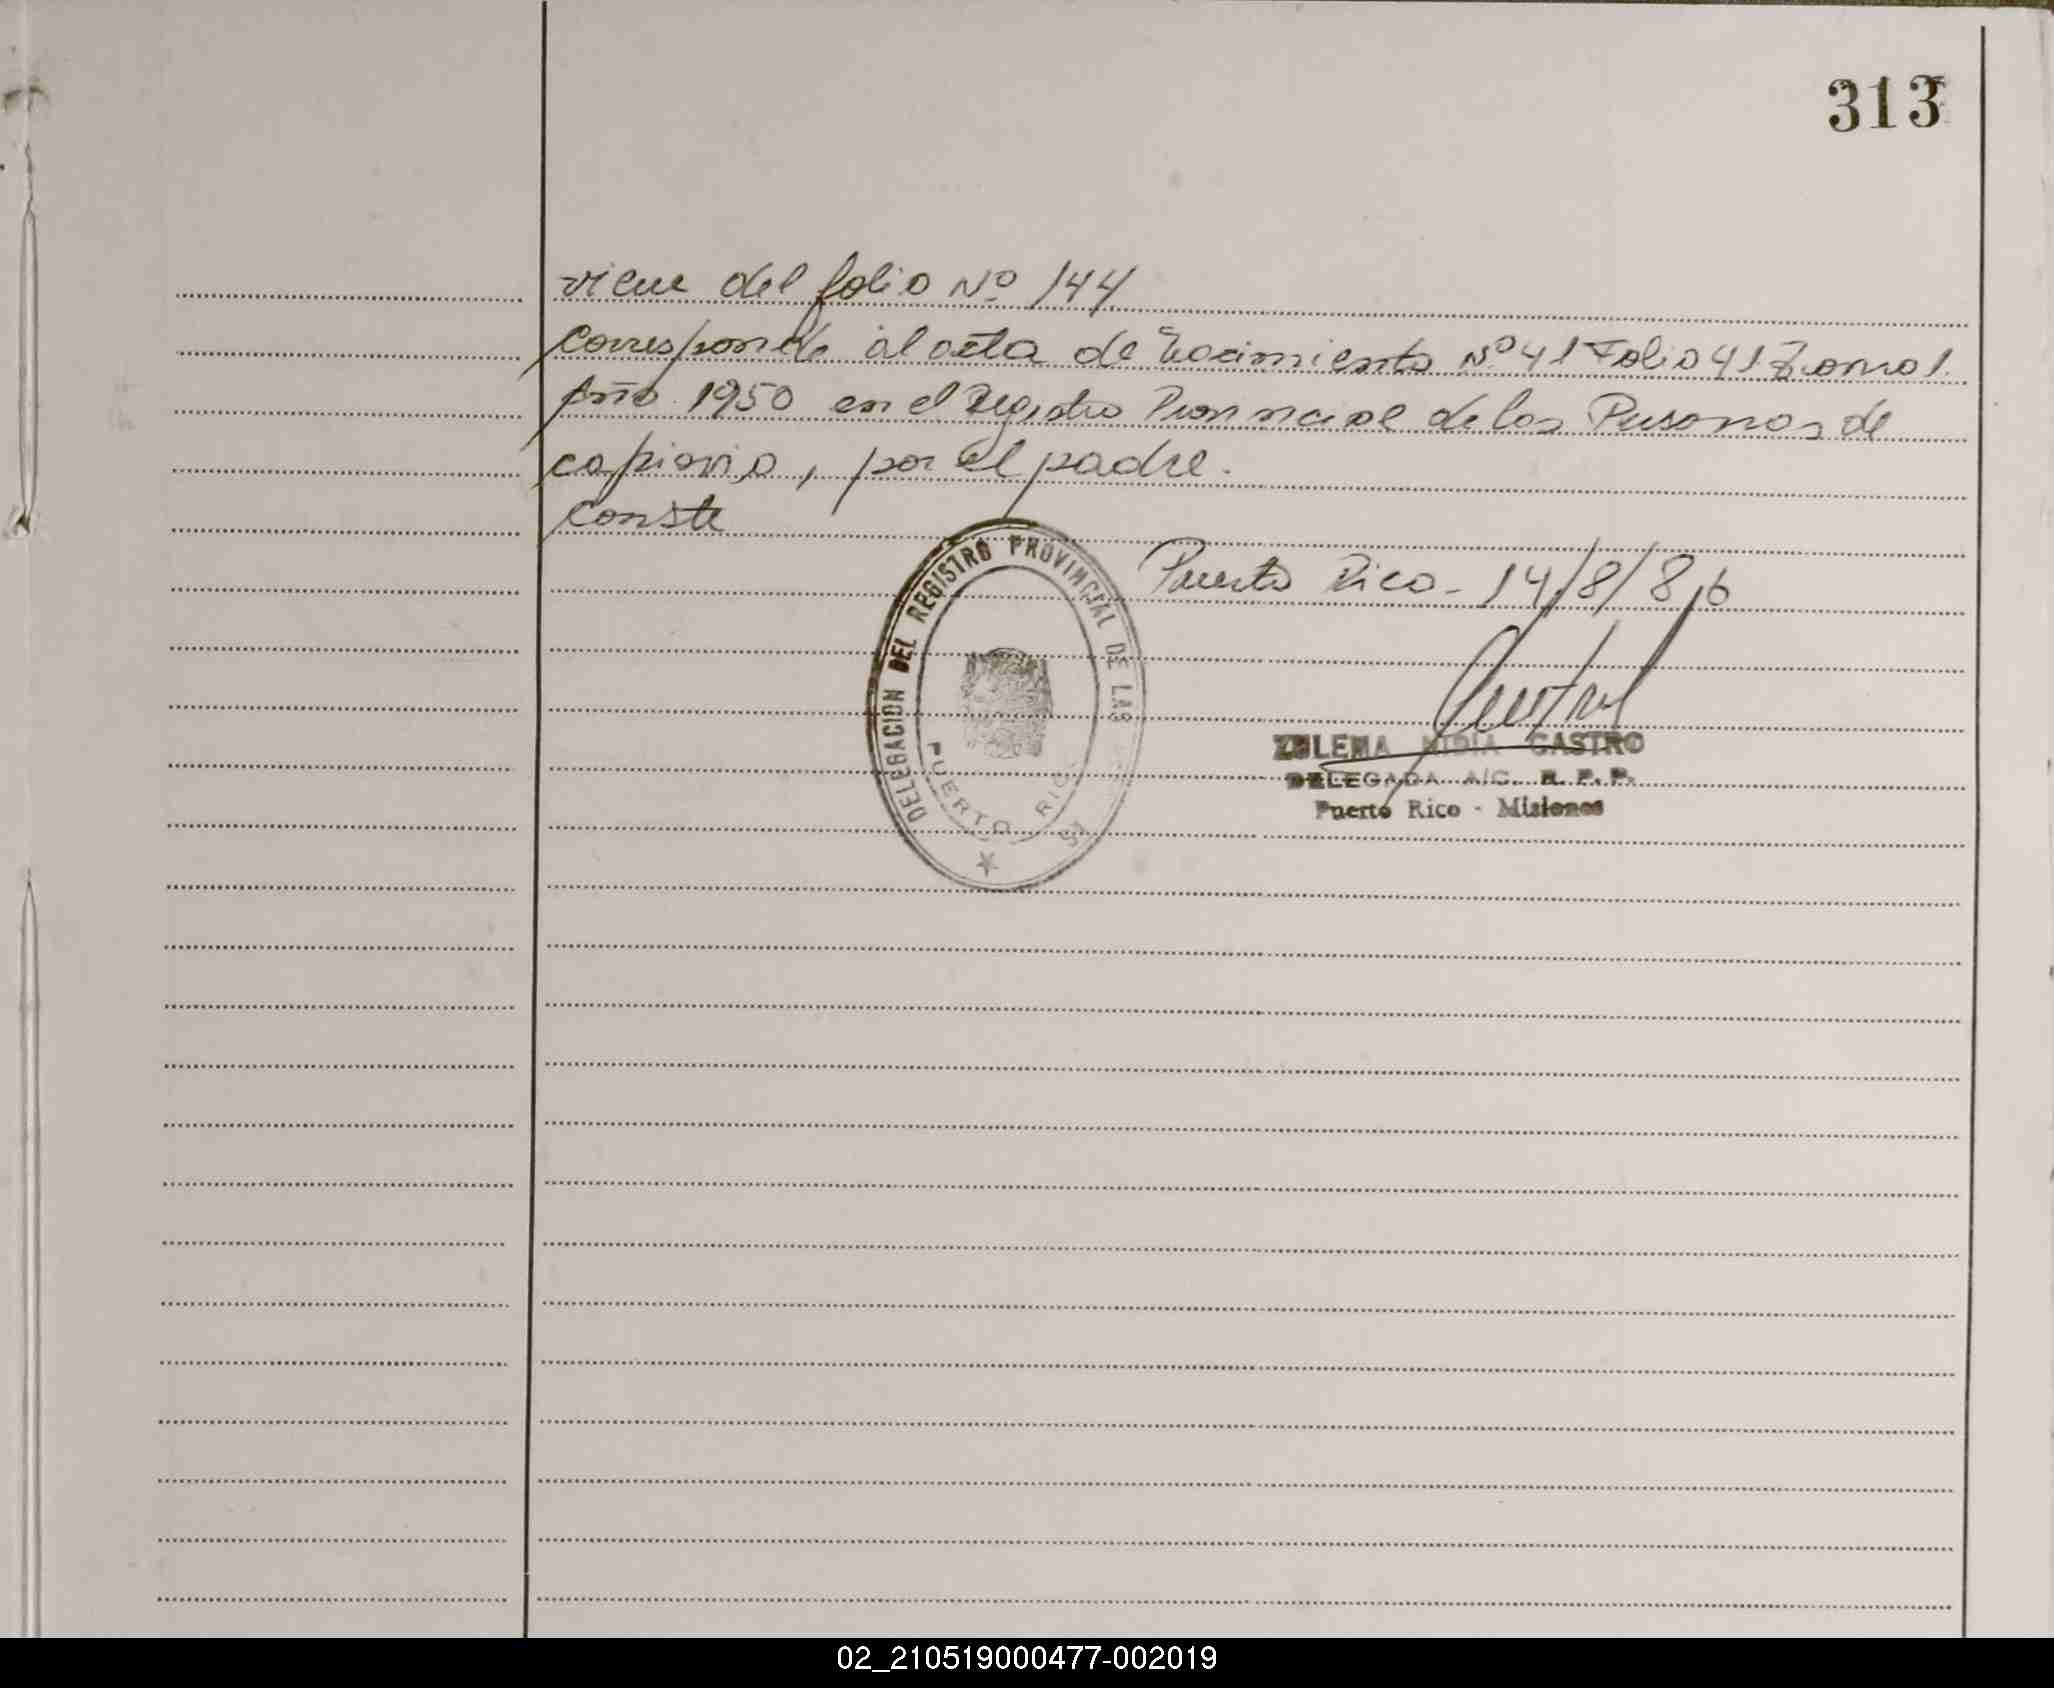 313
viene del folio Nº 144
Corresponde al acta de Nacimiento Nº 41 Folio 41 Tomo 1.
Año 1950 en el Registro Provincial de las Personas de
capiovia, por el padre.
Conste
Puerto Rico - 14/8/86
DELEGACION DEL REGISTRO PROVINCIAL DE LAS
PUERTO RICO
ZULEMA NIDIA CASTRO
DELEGADA A/C. R. P. P.
Puerto Rico - Misiones
02_210519000477-002019